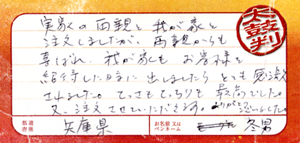 太鼓判
実家の両親と我が家と
注文しましたが、両親からも
喜ばれ、我が家も お客様を
招待した時に出しましたら とても感激
されました。てっさもてっちりも最高でした。
又、注文させていただきます。ありがとうございました。
都道府県 兵庫県
お名前又はペンネーム 冬男